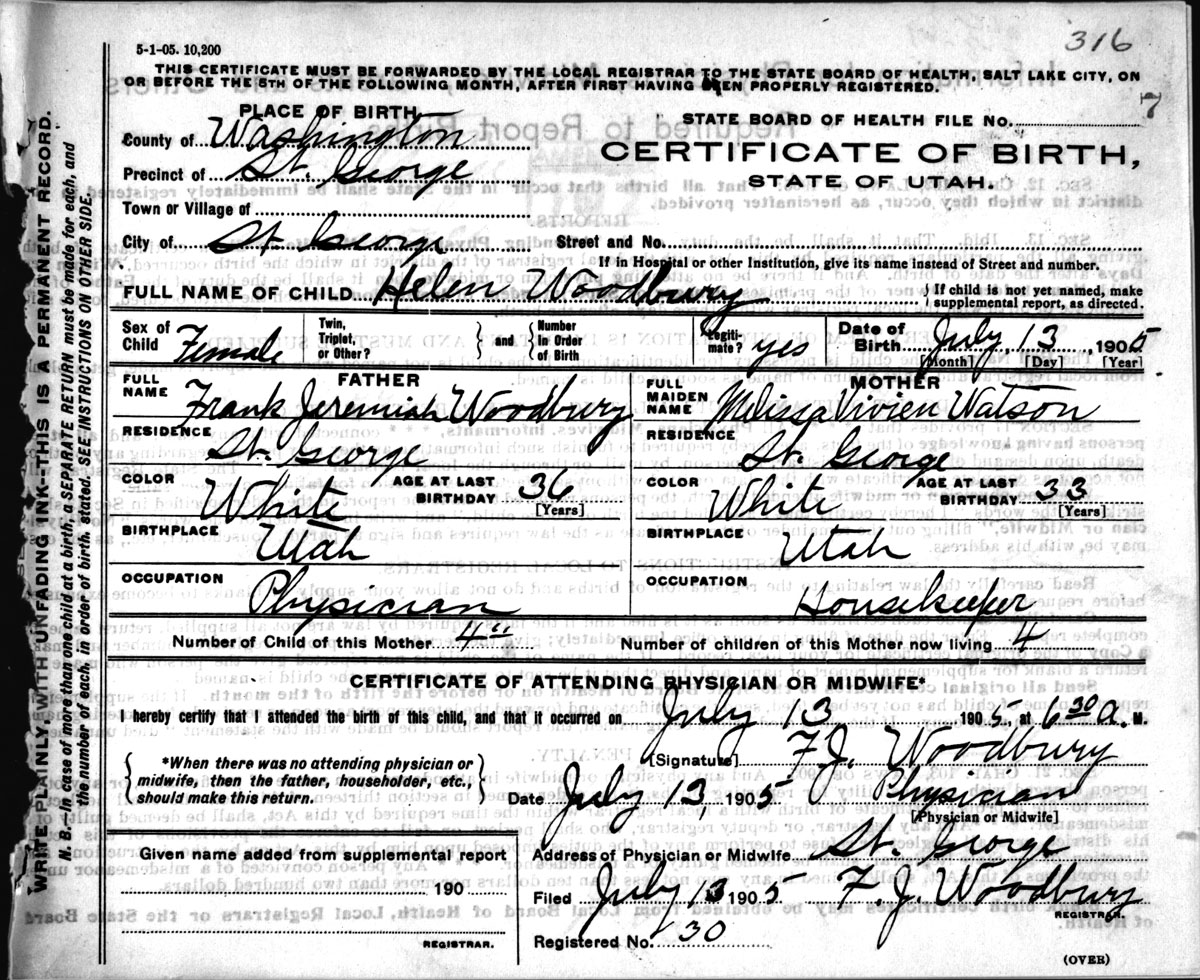 316
5-1-05. 10,200
THIS CERTIFICATE MUST BE FORWARDED BY THE LOCAL REGISTRAR TO THE STATE BOARD OF HEALTH, SALT LAKE CITY, ON
OR BEFORE THE 5TH OF THE FOLLOWING MONTH, AFTER FIRST HAVING BEEN PROPERLY REGISTERED.
7
PLACE OF BIRTH
STATE BOARD OF HEALTH FILE NO.
County of Washington
CERTIFICATE OF BIRTH,
Precinct of St. George
STATE OF UTAH.
Town or Village of
City of St. George Street and No.
If in Hospital or other Institution, give its name instead of Street and number.
FULL NAME OF CHILD Helen Woodbury { If child is not yet named, make supplemental report, as directed.
Sex of Child Female Twin, Triplet, or Other? } and { Number In Order of Birth Legiti-mate? yes Date of Birth July 13, 1905
[Month] [Day] [Year]
FATHER MOTHER
FULL NAME Frank Jeremiah Woodbury FULL MAIDEN NAME Melissa Vivien Watson
RESIDENCE St. George RESIDENCE St. George
COLOR White AGE AT LAST BIRTHDAY 36 [Years] COLOR White AGE AT LAST BIRTHDAY 33 [Years]
BIRTHPLACE Utah BIRTHPLACE Utah
OCCUPATION Physician OCCUPATION Housekeeper
Number of Child of this Mother 4th Number of children of this Mother now living 4
CERTIFICATE OF ATTENDING PHYSICIAN OR MIDWIFE*
I hereby certify that I attended the birth of this child, and that it occurred on July 13 1905 at 6 30 a. M.
[Signature] F. J. Woodbury
*When there was no attending physician or
midwife, then the father, householder, etc.,
should make this return.
Date July 13, 1905 Physician
[Physician or Midwife]
Given name added from supplemental report
190
REGISTRAR.
Address of Physician or Midwife St. George
Filed July 13 1905 F. J. Woodbury
REGISTRAR.
Registered No. 30
(OVER)
WRITE PLAINLY WITH UNFADING INK—THIS IS A PERMANENT RECORD.
N. B.—In case of more than one child at a birth, a SEPARATE RETURN must be made for each, and
the number of each, in order of birth, stated. SEE INSTRUCTIONS ON OTHER SIDE.